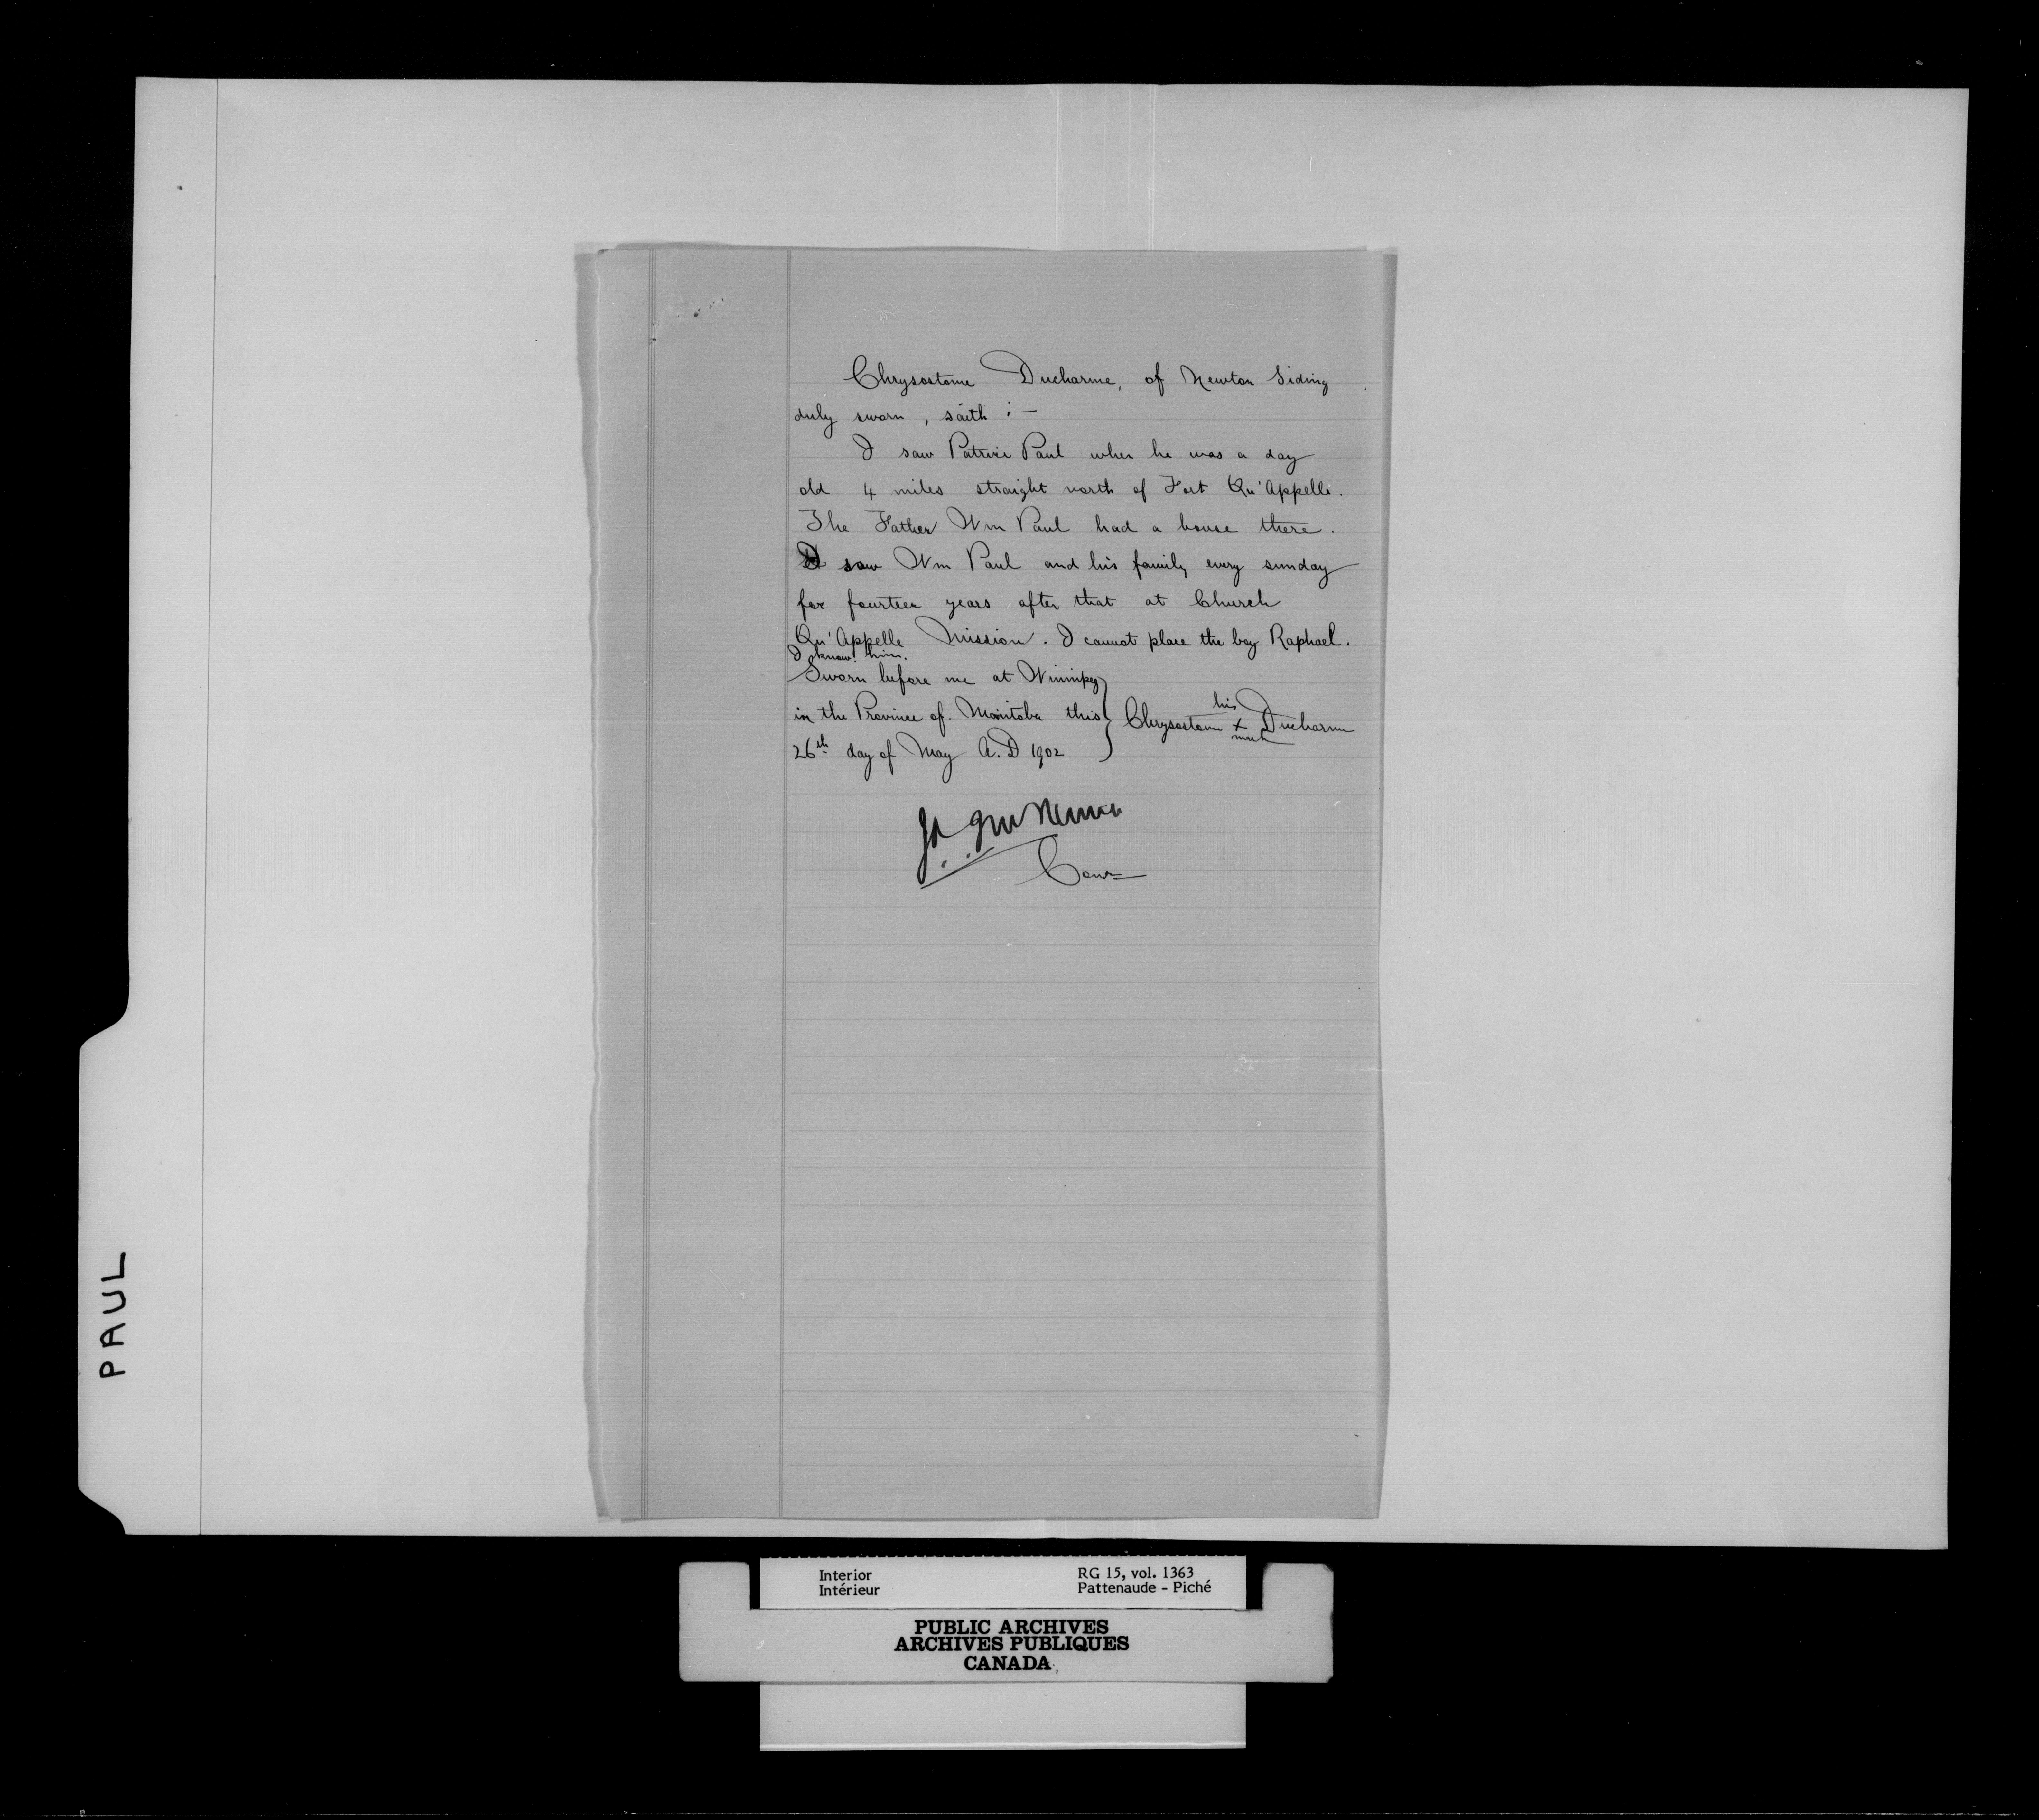 Chrysostome Ducharme, of Newton Siding
duly sworn, saith :—
I saw Patrice Paul when he was a day
old 4 miles straight north of Fort Qu'Appelle.
The Father Wm Paul had a house there.
I saw Wm Paul and his family every sunday
for fourteen years after that at Church
Qu'Appelle Mission. I cannot place the boy Raphael.
I know him.
Sworn before me at Winnipeg
in the Province of Manitoba this
26th day of May A.D 1902
his
Chrysostome x Ducharme
mark
PAUL
Interior
Intérieur
RG 15, vol. 1363
Pattenaude - Piché
PUBLIC ARCHIVES
ARCHIVES PUBLIQUES
CANADA